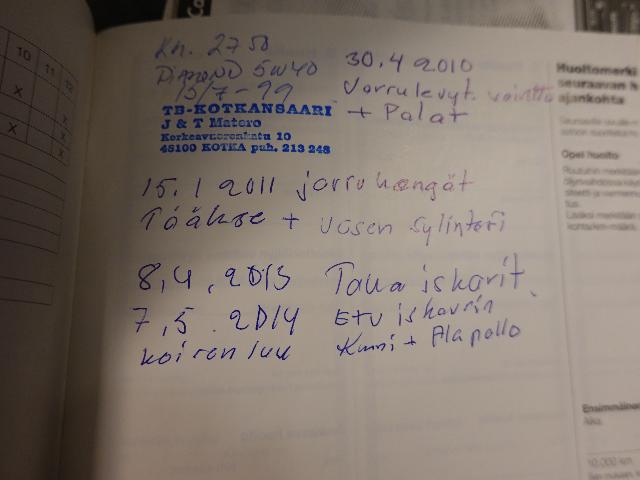 10 11 12
x
x x
x
Km. 2750
Diamond 5w40
15/7-99
TB-KOTKANSAARI
J & T Matero
Korkeavuorenkatu 10
48100 KOTKA puh. 213 248
30.4 2010
Jarrulevyt. vaihto
+ Palat
15.1 2011 jarruhengät
Tääkse + vasen sylinteri
8,4,2013 Taka iskarit.
7,5.2014 Etu iskarin
koiran luu Kumi + Alapallo
Huoltomerki
seuraavan h
ajankohta
Opel huolto
Ensimmäine
Aika
10.000 km